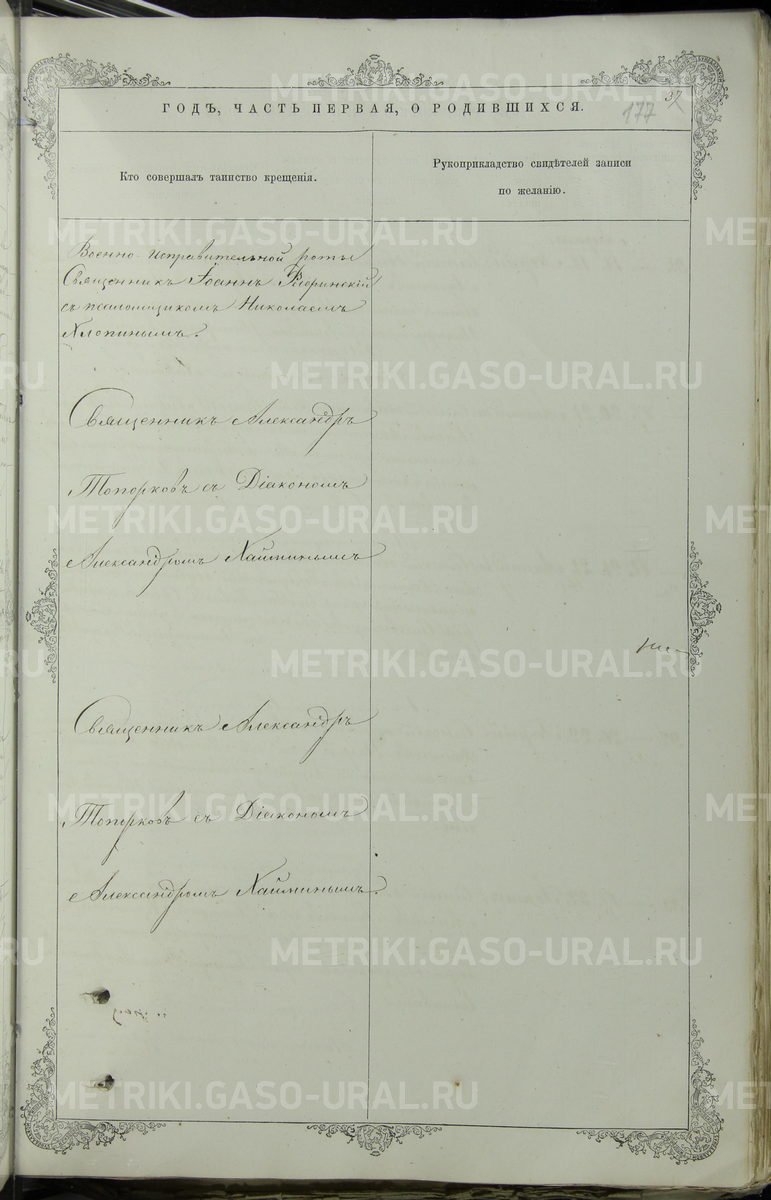 37
177
ГОДЪ, ЧАСТЬ ПЕРВАЯ, О РОДИВШИХСЯ.
Кто совершалъ таинство крещенія.
Рукоприкладство свидѣтелей записи
по желанію.
Военно-исправительной роты
Священникъ Іоаннъ Флоринскій
съ псаломщикомъ Николаемъ
Хлопинымъ.
Священникъ Александръ
Топорковъ съ Діакономъ
Александромъ Хайминымъ
Священникъ Александръ
Топорковъ съ Діакономъ
Александромъ Хайминымъ.
METRIKI.GASO-URAL.RU